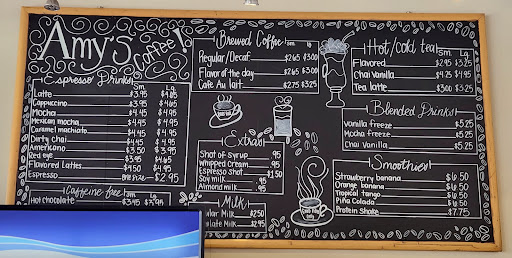 Amy's
Coffee!
Espresso Drinks
Sm. Lg.
Latte $3.95 $4.65
Cappuccino $3.95 $4.65
Mocha $4.45 $4.95
Mexican mocha $4.45 $4.95
Caramel machiato $4.45 $4.95
Dirty chai $4.45 $4.95
Americano $3.50 $3.95
Red eye $3.95 $4.65
Flavored Lattes $4.50 $4.95
Espresso $2.95
Caffeine free
Sm. Lg.
Hot chocolate $3.95
Brewed Coffee! Sm. Lg.
Regular/Decaf $2.65 $3.00
Flavor of the day $2.65 $3.00
Cafe Au lait $2.75 $3.25
Extras!
Shot of Syrup .95
Whipped Cream .95
Espresso Shot $1.50
Soy milk .95
Almond milk .95
Milk
Milk $2.50
Milk $2.50
Hot/cold tea! Sm. Lg.
Flavored $2.45 $3.25
Chai Vanilla $4.25 $4.95
Tea latte $3.00 $3.25
Blended Drinks!
Vanilla freeze $5.25
Mocha freeze $5.25
Chai Vanilla $5.25
Smoothies!
Strawberry banana $6.50
Orange banana $6.50
Tropical tango $6.50
Piña Colada $6.50
Protein Shake $7.75